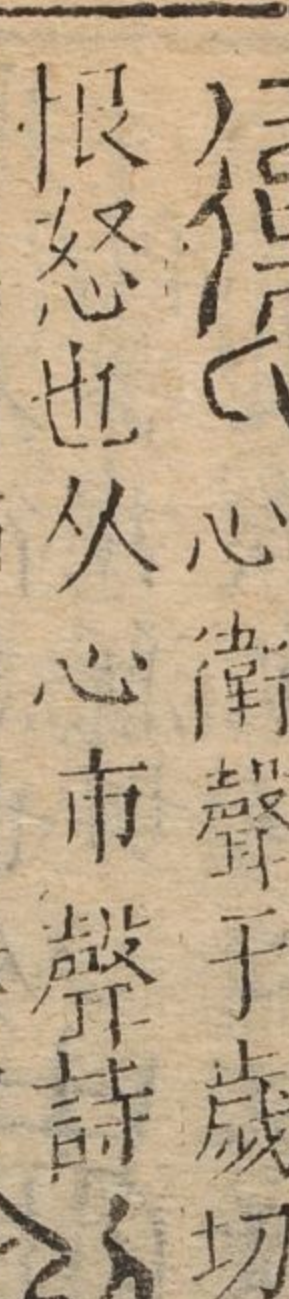 心衛聲于歲切
恨怒也从心市聲詩